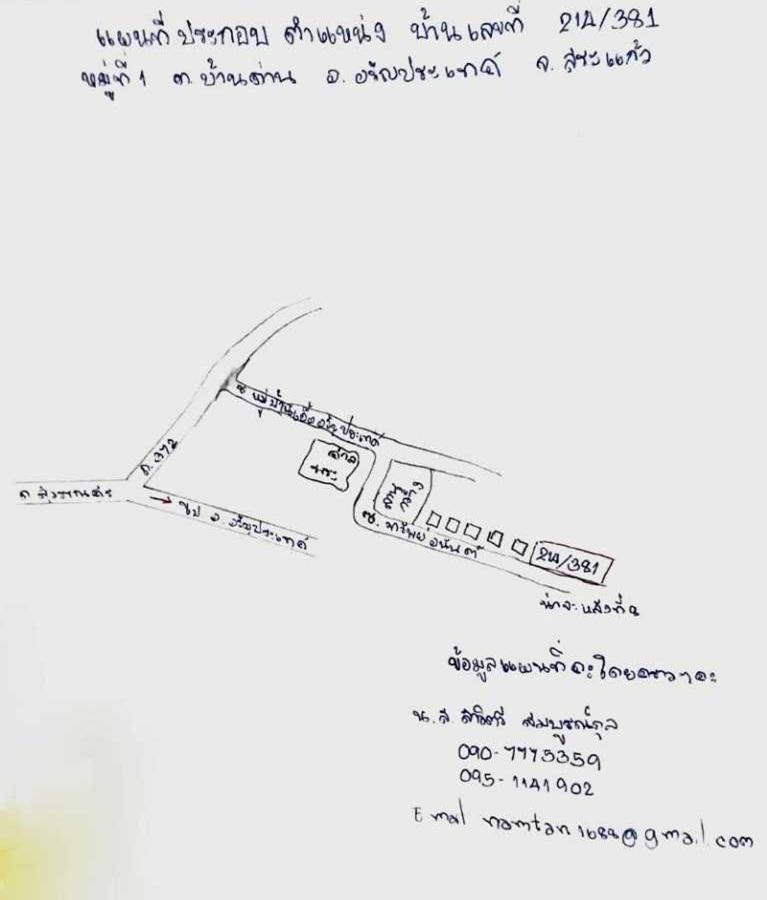 แผนที่ ประกอบ ตำแหน่ง บ้านเลขที่ 214/381
หมู่ที่ 1 ต. บ้านด่าน อ. อรัญประเทศ จ. สระแก้ว
ซ. หมู่บ้านเอื้ออรัญประเทศ
ถ. 372
ศาล
พระ
ลานกว้าง
ถ. สุวรรณศร
→ ไป อ. อรัญประเทศ
ซ. ทรัพย์อนันต์
214/381
น่าจะหลังที่
ข้อมูลแผนที่
น.ส. สมบูรณ์กุล
090-7775359
095-1141902
Email @gmail.com